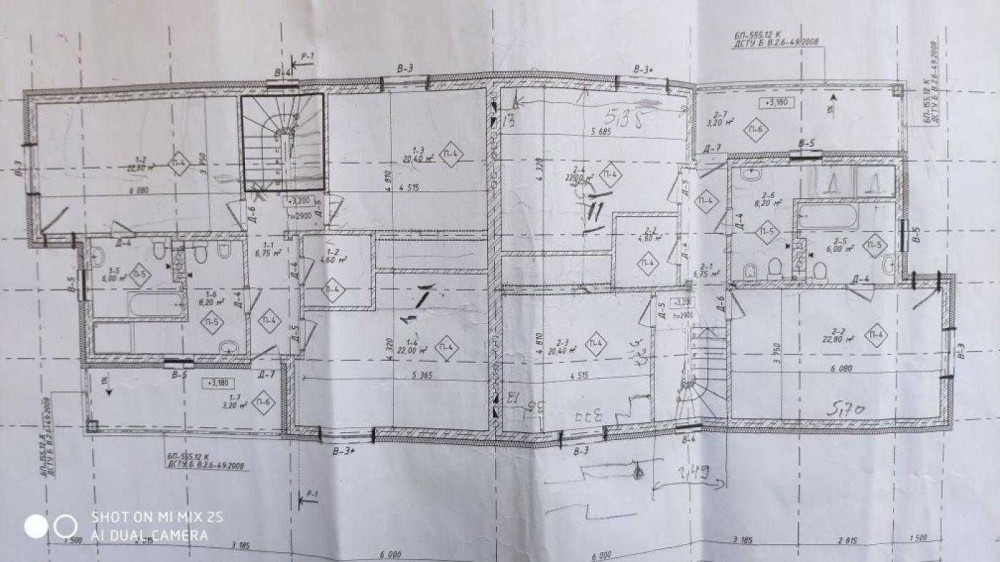 БП-555.12 К
ДСТУ Б В.2.6-49:2008
Р-1
В-4
В-3
В-3*
+3,180
1%
2-7
3,20 м²
П-6
В-5
Д-7
БП-155.12 К
ДСТУ Б В.2.6-49:2008
В-3
1-2
22,80 м²
П-4
3 750
6 080
1-3
20,40 м²
П-4
4 810
4 515
13
5,35
5 685
4 320
2-4
22,00 м²
П-4
11
Д-5
П-4
2-6
8,20 м²
П-5
Д-4
2-5
6,00 м²
П-5
В-5
+3,200
h=2900
Д-6
Д-5
Д-4
1-1
6,75 м²
1-2
4,60 м²
П-4
2-2
4,60 м²
П-4
Д-4
2-1
6,75 м²
В-5
1-5
6,00 м²
П-5
1-6
8,20 м²
П-5
Д-4
П-4
Д-5
Д-4
+3,200
h=2900
Д-6
Д-5
1-4
22,00 м²
П-4
4 320
5 365
4 810
2-3
20,40 м²
П-4
4 515
2-2
22,80 м²
П-4
3 750
6 080
5,70
В-3
В-5
Д-7
+3,180
1%
1-7
3,20 м²
П-6
13
В-3*
В-3
В-4
2,49
БП-155.12 К
ДСТУ Б В.2.6-49:2008
БП-555.12 К
ДСТУ Б В.2.6-49:2008
Р-1
SHOT ON MI MIX 2S
AI DUAL CAMERA
1 500
2 815
3 185
6 000
6 000
3 185
2 815
1 500